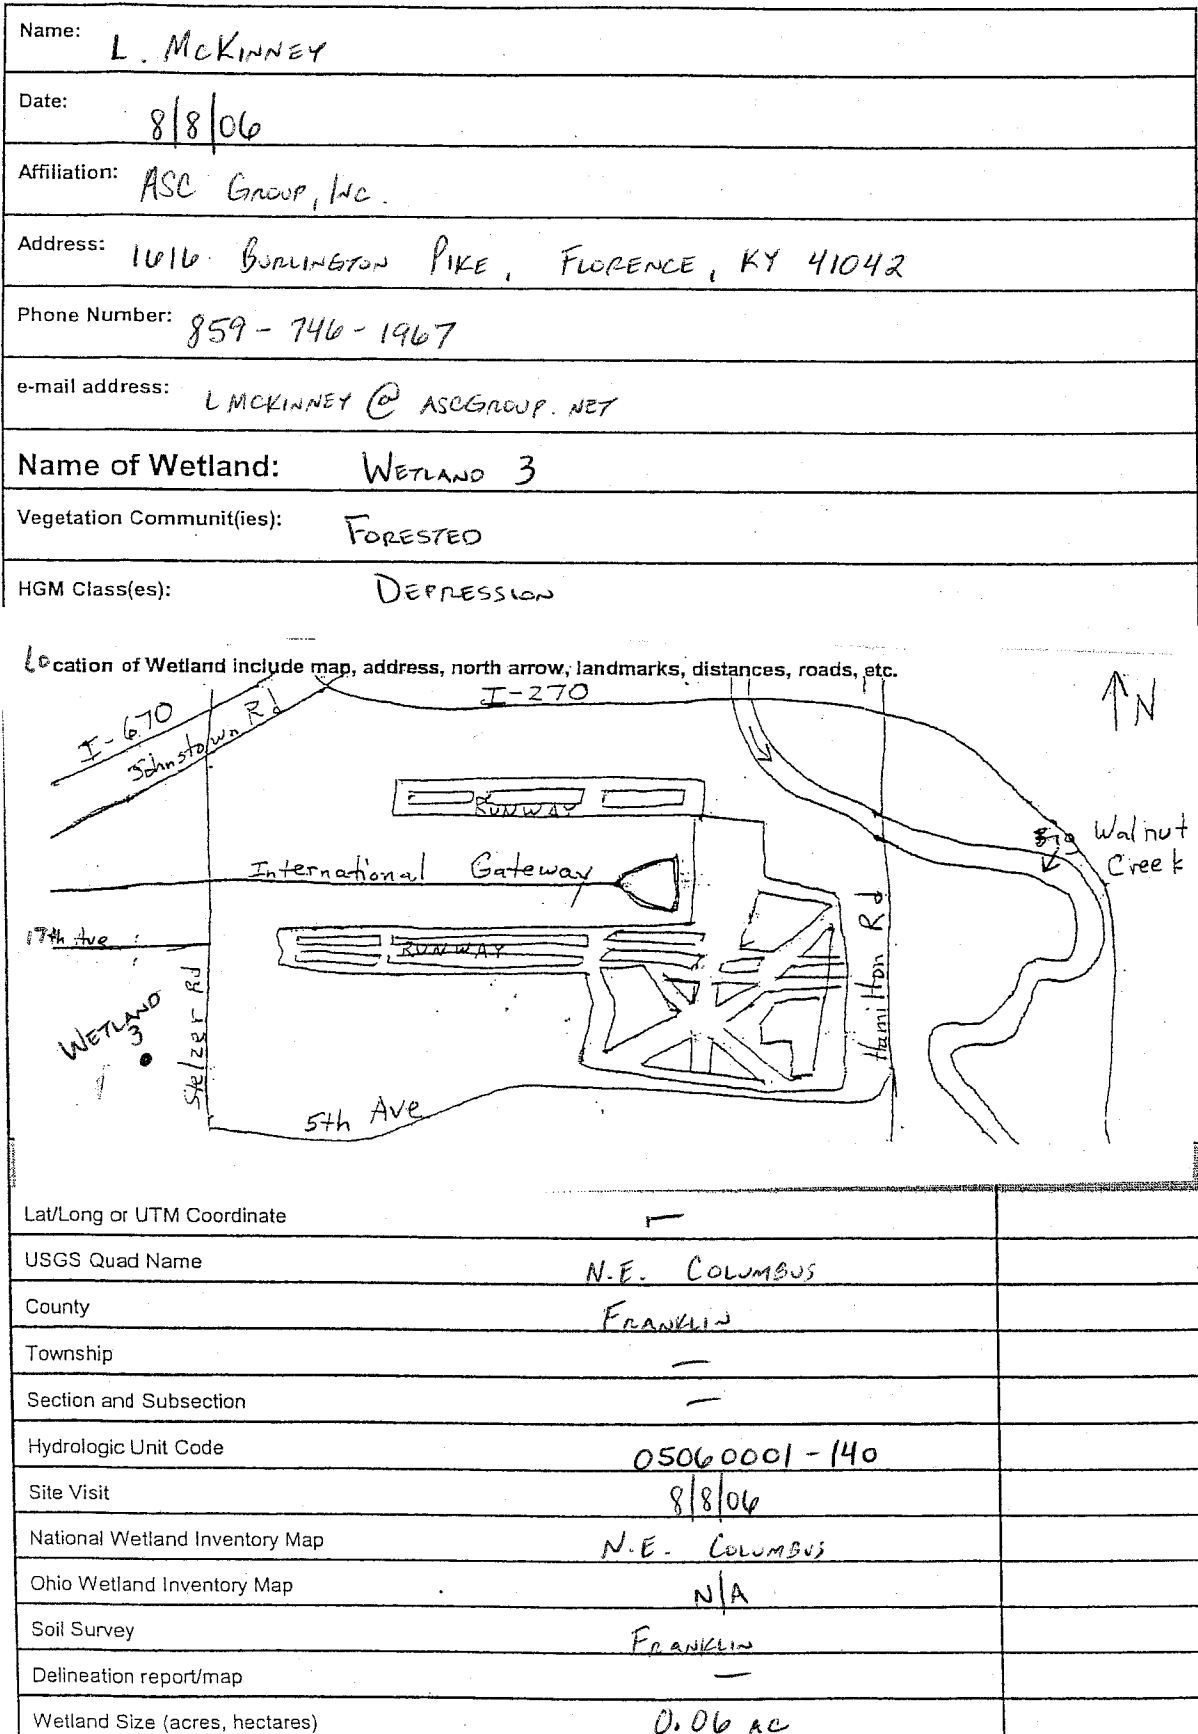 Name: L. McKinney
Date: 8/8/06
Affiliation: ASC Group, Inc.
Address: 1616 Burlington Pike, Florence, KY 41042
Phone Number: 859-746-1967
e-mail address: LMCKINNEY@ASCGROUP.NET
Name of Wetland: Wetland 3
Vegetation Communit(ies): Forested
HGM Class(es): Depression
Location of Wetland include map, address, north arrow, landmarks, distances, roads, etc.
I-270
N
I-670
Johnstown Rd
RUNWAY
Big Walnut
Creek
International Gateway
17th Ave
RUNWAY
Hamilton Rd
Stelzer Rd
WETLAND
3
5th Ave
Lat/Long or UTM Coordinate —
USGS Quad Name N.E. Columbus
County Franklin
Township —
Section and Subsection —
Hydrologic Unit Code 05060001-140
Site Visit 8/8/06
National Wetland Inventory Map N.E. Columbus
Ohio Wetland Inventory Map N/A
Soil Survey Franklin
Delineation report/map —
Wetland Size (acres, hectares) 0.06 ac